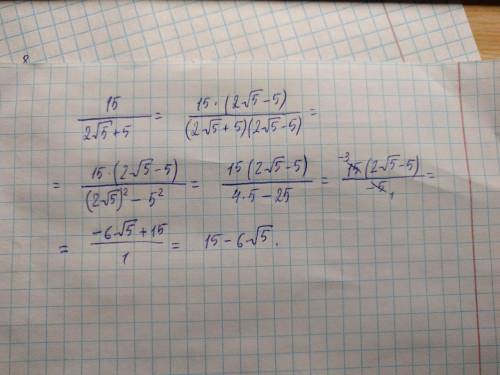 15/(2√5+5) = 15·(2√5-5)/((2√5+5)(2√5-5)) =
= 15·(2√5-5)/((2√5)²-5²) = 15(2√5-5)/(4·5-25) = -3 15(2√5-5)/-5 1 =
= (-6√5+15)/1 = 15-6√5.